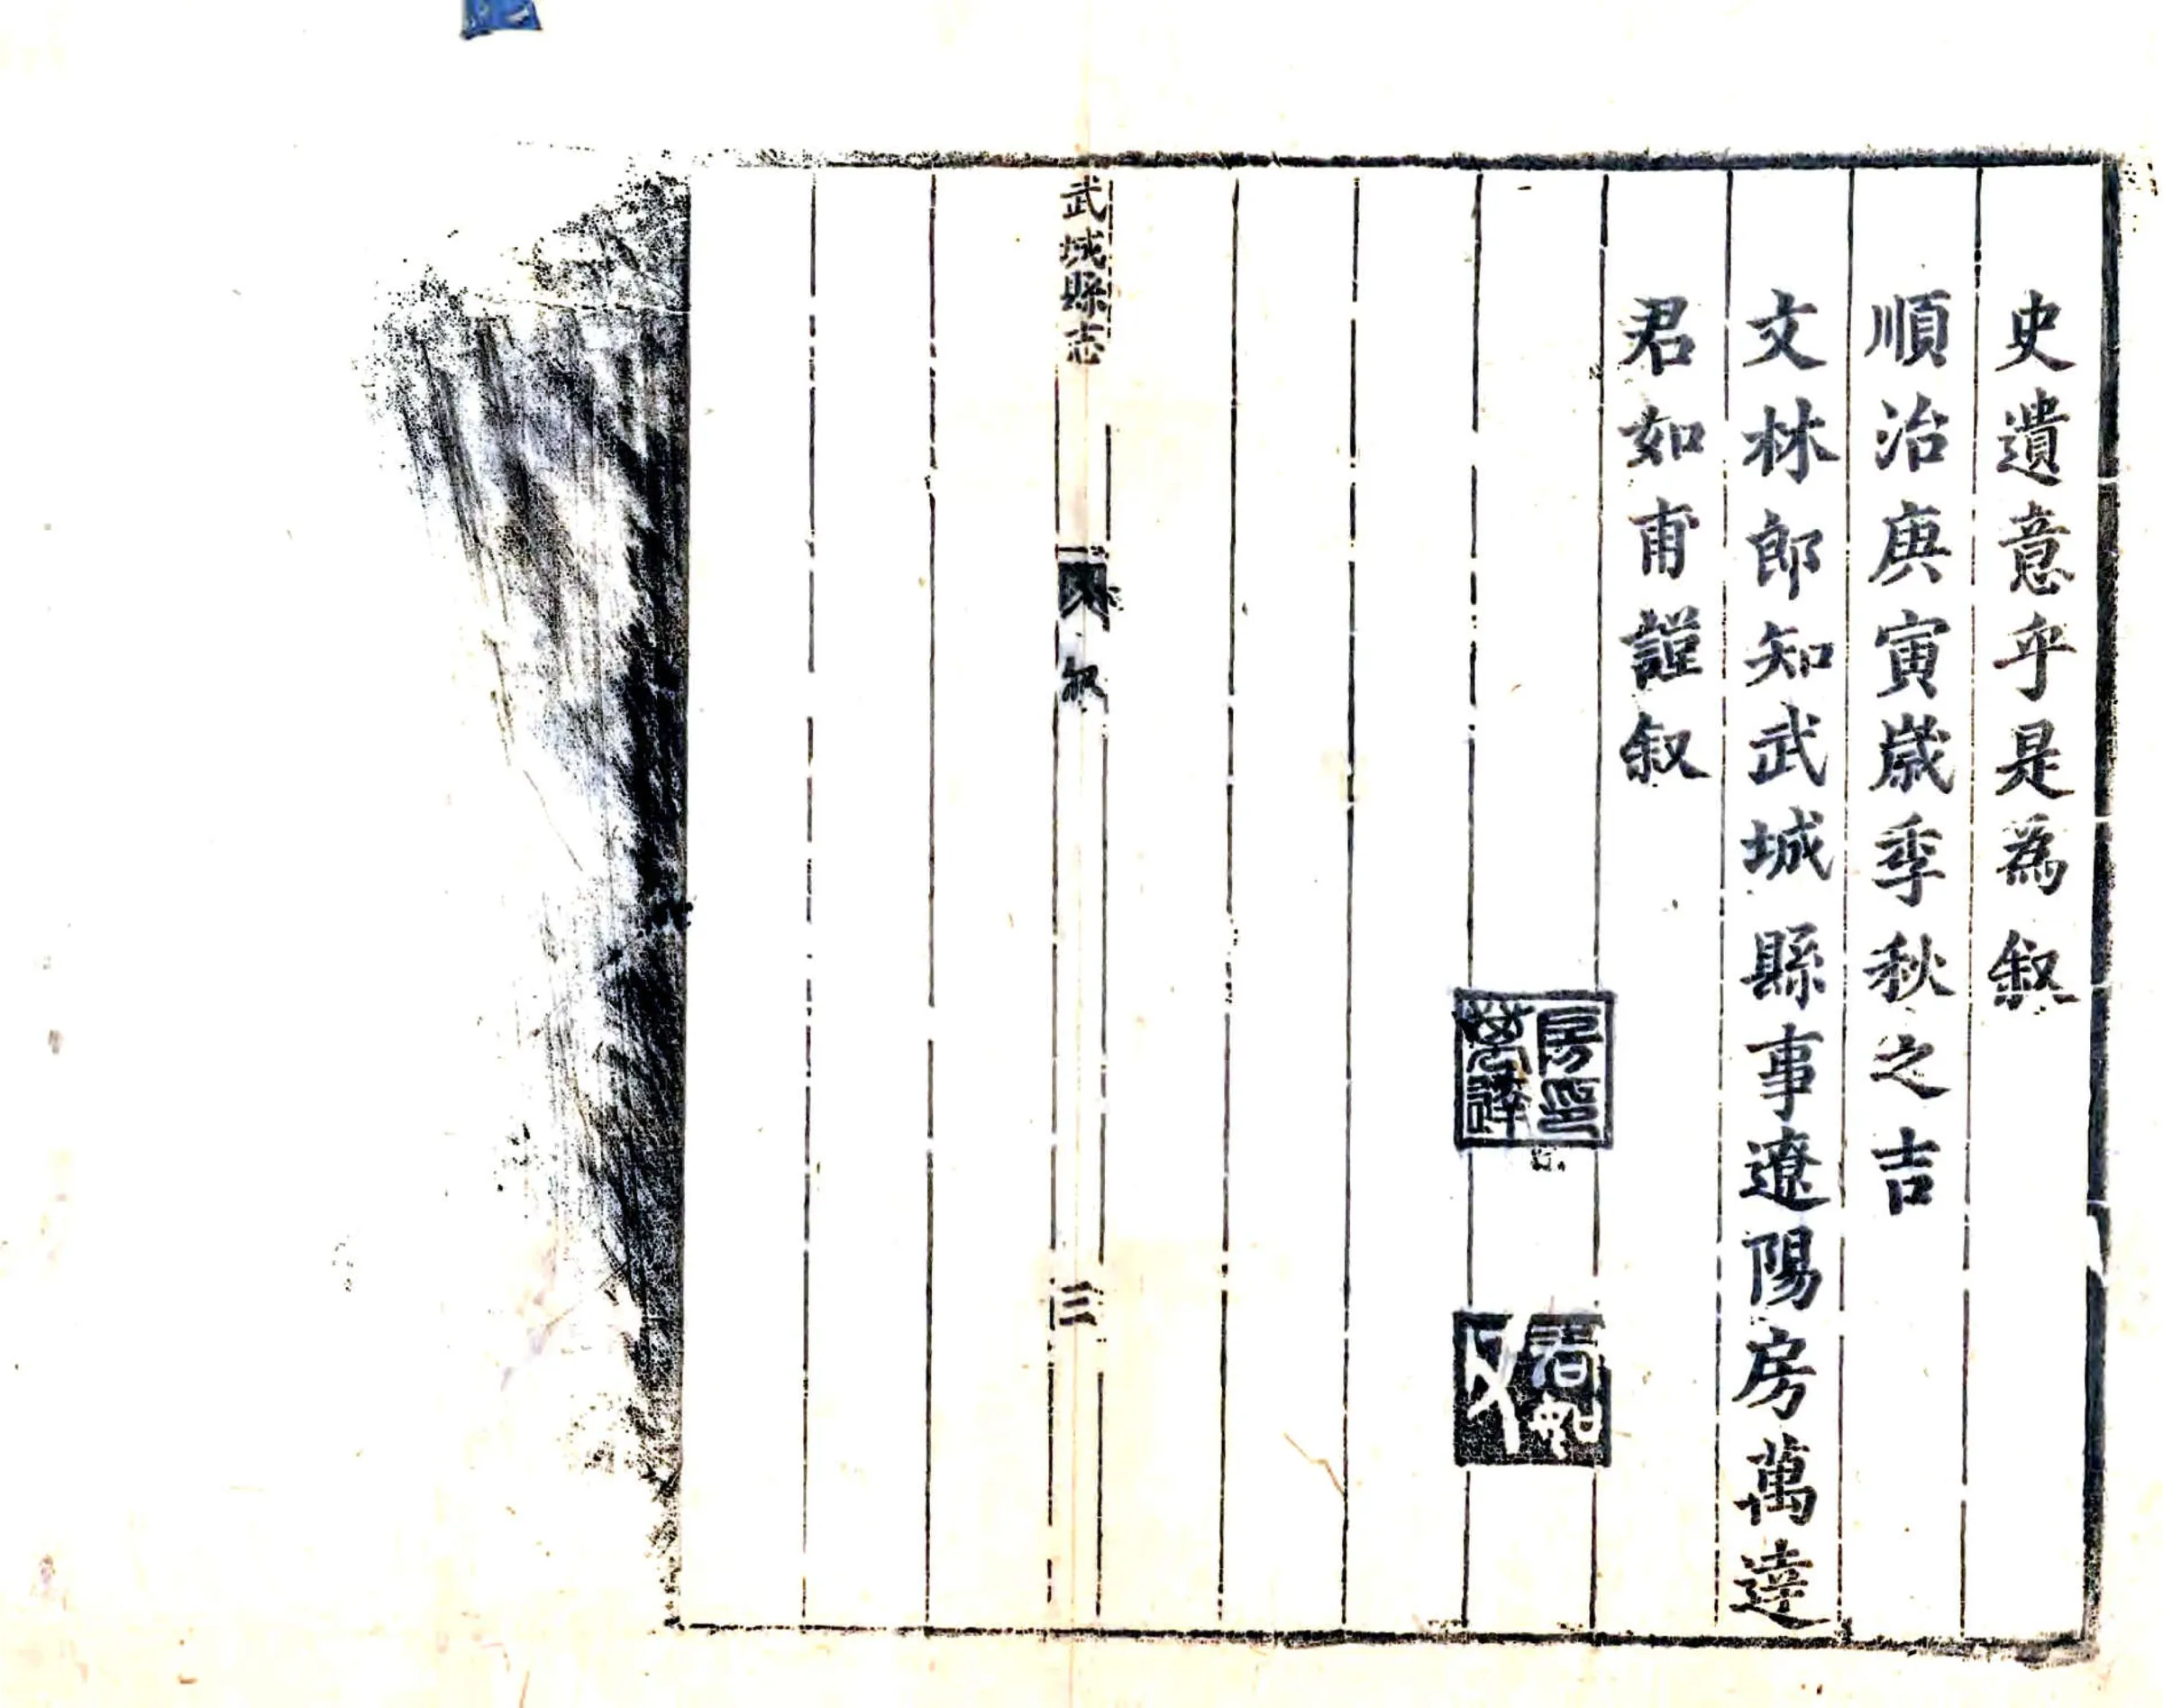 史遺意乎是為叙
順治庚寅歲季秋之吉
文林郎知武城縣事遼陽房萬達
君如甫謹叙
房印萬達
君如父
武城縣志
叙
三